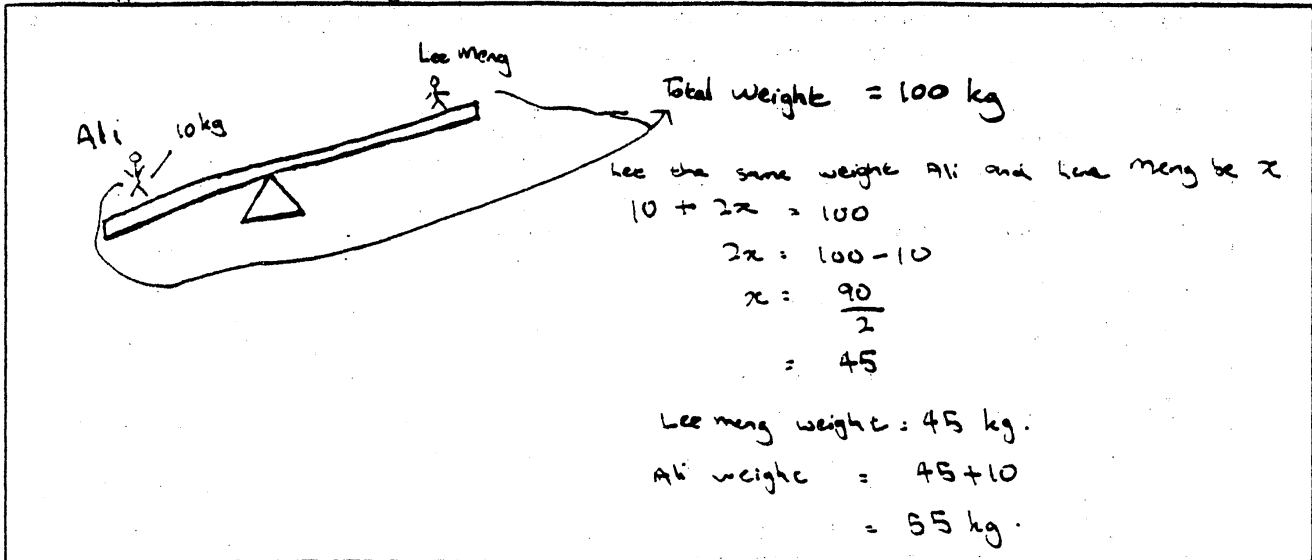 Lee Meng
Ali 10 kg
Total weight = 100 kg
Let the same weight Ali and Lee Meng be x
10 + 2x = 100
2x = 100 - 10
x = 90/2
= 45
Lee meng weight = 45 kg.
Ali weight = 45 + 10
= 55 kg.